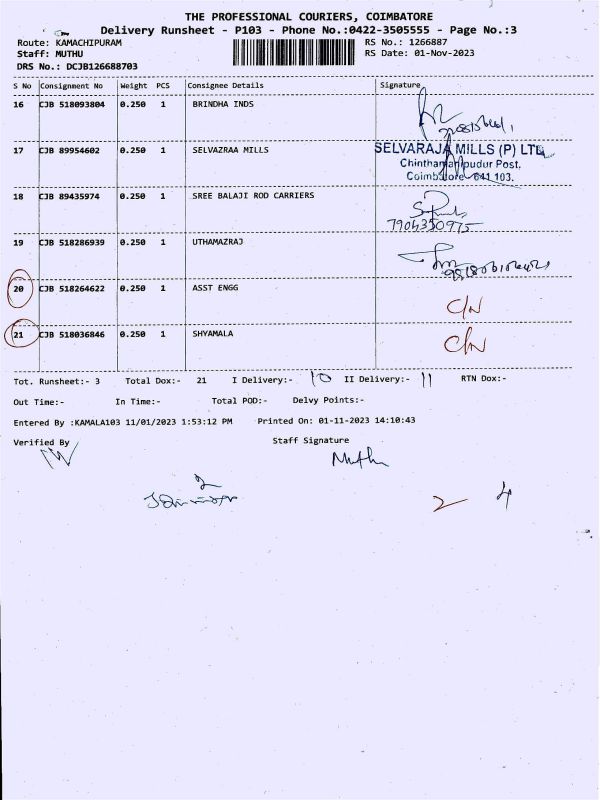 THE PROFESSIONAL COURIERS, COIMBATORE
Delivery Runsheet - P103 - Phone No.:0422-3505555 - Page No.:3
Route: KAMACHIPURAM
RS No.: 1266887
Staff: MUTHU
RS Date: 01-Nov-2023
DRS No.: DCJB126688703
S No Consignment No Weight PCS Consignee Details Signature
16 CJB 518093804 0.250 1 BRINDHA INDS
17 CJB 89954602 0.250 1 SELVAZRAA MILLS
SELVARAJA MILLS (P) LTD.,
Chinthamanipudur Post,
Coimbatore - 641 103.
18 CJB 89435974 0.250 1 SREE BALAJI ROD CARRIERS
7904350975
19 CJB 518286939 0.250 1 UTHAMAZRAJ
20 CJB 518264622 0.250 1 ASST ENGG C/N
21 CJB 518036846 0.250 1 SHYAMALA C/N
Tot. Runsheet:- 3 Total Dox:- 21 I Delivery:- 10 II Delivery:- 11 RTN Dox:-
Out Time:- In Time:- Total POD:- Delvy Points:-
Entered By :KAMALA103 11/01/2023 1:53:12 PM Printed On: 01-11-2023 14:10:43
Verified By Staff Signature
Muthu
2 4